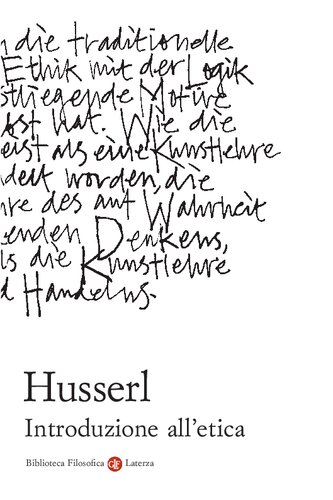 n die traditionelle
Ethik mit der Logik
stliegende Motive
osst hat. Wie die
eist als eine Kunstlehre
delt worden, die
hre des auf Wahrheit
enden Denkens,
ls die Kunstlehre
d Handelns.
Husserl
Introduzione all'etica
Biblioteca Filosofica
Laterza